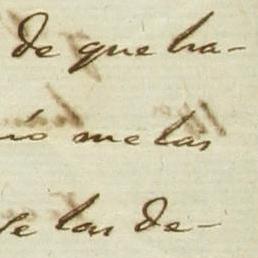 de que ha-
me las
de las de-